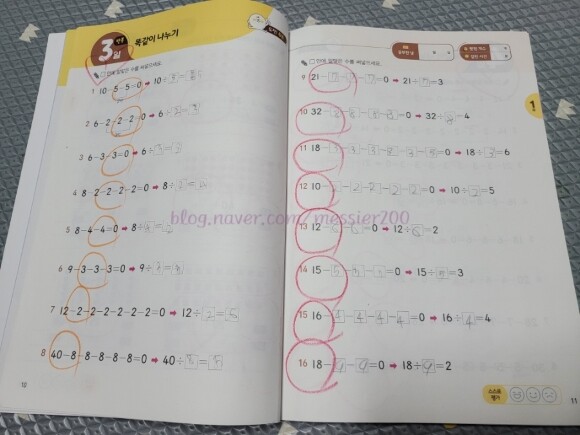 3일
똑같이 나누기
□ 안에 알맞은 수를 써넣으세요.
1 10-5-5=0 ➡ 10÷
2 6-2-2-2=0 ➡ 6÷2=3
3 6-3-3=0 ➡ 6÷3=2
4 8-2-2-2-2=0 ➡ 8÷2=4
5 8-4-4=0 ➡ 8÷4=2
6 9-3-3-3=0 ➡ 9÷3=3
7 12-2-2-2-2-2-2=0 ➡ 12÷2=6
8 40-8-8-8-8-8=0 ➡ 40÷8=5
10
□ 안에 알맞은 수를 써넣으세요.
9 21-7-7-7=0 ➡ 21÷7=3
10 32-8-8-8-8=0 ➡ 32÷8=4
11 18-3-3-3-3-3-3=0 ➡ 18÷3=6
12 10-2-2-2-2-2=0 ➡ 10÷2=5
13 12-6-6=0 ➡ 12÷6=2
14 15-5-5-5=0 ➡ 15÷5=3
15 16-4-4-4-4=0 ➡ 16÷4=4
16 18-9-9=0 ➡ 18÷9=2
1
스스로
평가
11
blog.naver.com/messier200